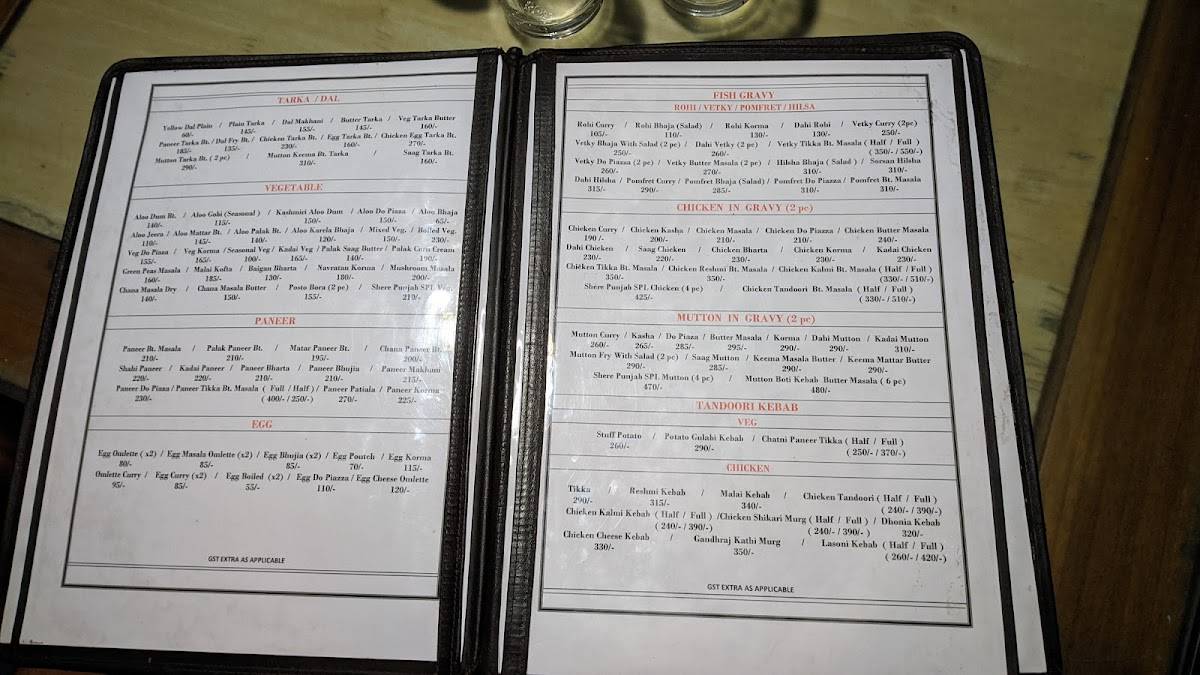 TARKA / DAL
Yellow Dal Plain / Plain Tarka / Dal Makhani / Butter Tarka / Veg Tarka Butter
60/- 145/- 155/- 145/- 160/-
Paneer Tarka Bt. / Dal Fry Bt. / Chicken Tarka Bt. / Egg Tarka Bt. / Chicken Egg Tarka Bt.
185/- 135/- 230/- 160/- 270/-
Mutton Tarka Bt. ( 2 pc) / Mutton Keema Bt. Tarka / Saag Tarka Bt.
290/- 310/- 160/-
VEGETABLE
Aloo Dum Bt. / Aloo Gobi (Seasonal ) / Kashmiri Aloo Dum / Aloo Do Piaza / Aloo Bhaja
140/- 115/- 150/- 150/- 65/-
Aloo Jeera / Aloo Mattar Bt. / Aloo Palak Bt. / Aloo Karela Bhaja / Mixed Veg. / Boiled Veg.
110/- 145/- 140/- 120/- 150/- 230/-
Veg Do Piaza / Veg Korma / Seasonal Veg / Kadai Veg / Palak Saag Butter / Palak Corn Cream
155/- 165/- 100/- 165/- 140/- 190/-
Green Peas Masala / Malai Kofta / Baigan Bharta / Navratan Korma / Mushroom Masala
160/- 185/- 130/- 180/- 200/-
Chana Masala Dry / Chana Masala Butter / Posto Bora (2 pc) / Shere Punjab SPL Veg.
140/- 150/- 155/- 210/-
PANEER
Paneer Bt. Masala / Palak Paneer Bt. / Matar Paneer Bt. / Chana Paneer Bt.
210/- 210/- 195/- 200/-
Shahi Paneer / Kadai Paneer / Paneer Bharta / Paneer Bhujia / Paneer Makhani
220/- 220/- 210/- 210/- 215/-
Paneer Do Piaza / Paneer Tikka Bt. Masala ( Full / Half ) / Paneer Patiala / Paneer Korma
230/- ( 400/- / 250/-) 270/- 225/-
EGG
Egg Omlette ( x2) / Egg Masala Omlette (x2) / Egg Bhujia (x2) / Egg Poutch / Egg Korma
80/- 85/- 85/- 70/- 115/-
Omlette Curry / Egg Curry (x2) / Egg Boiled (x2) / Egg Do Piazza / Egg Cheese Omlette
95/- 85/- 55/- 110/- 120/-
GST EXTRA AS APPLICABLE
FISH GRAVY
ROHI / VETKY / POMFRET / HILSA
Rohi Curry / Rohi Bhaja (Salad) / Rohi Korma / Dahi Rohi / Vetky Curry (2pc)
105/- 110/- 130/- 130/- 250/-
Vetky Bhaja With Salad (2 pc) / Dahi Vetky (2 pc) / Vetky Tikka Bt. Masala ( Half / Full )
250/- 260/- ( 350/- / 550/-)
Vetky Do Piazza (2 pc) / Vetky Butter Masala (2 pc) / Hilsha Bhaja ( Salad ) / Sorsan Hilsha
260/- 270/- 310/- 310/-
Dahi Hilsha / Pomfret Curry / Pomfret Bhaja (Salad) / Pomfret Do Piazza / Pomfret Bt. Masala
315/- 290/- 285/- 310/- 310/-
CHICKEN IN GRAVY (2 pc)
Chicken Curry / Chicken Kasha / Chicken Masala / Chicken Do Piazza / Chicken Butter Masala
190 /- 200/- 210/- 210/- 240/-
Dahi Chicken / Saag Chicken / Chicken Bharta / Chicken Korma / Kadai Chicken
230/- 220/- 230/- 230/- 230/-
Chicken Tikka Bt. Masala / Chicken Reshmi Bt. Masala / Chicken Kalmi Bt. Masala ( Half / Full )
350/- 350/- (330/- / 510/-)
Shere Punjab SPL Chicken (4 pc) / Chicken Tandoori Bt. Masala ( Half / Full )
425/- ( 330/- / 510/-)
MUTTON IN GRAVY (2 pc)
Mutton Curry / Kasha / Do Piaza / Butter Masala / Korma / Dahi Mutton / Kadai Mutton
260/- 265/- 285/- 295/- 290/- 290/- 310/-
Mutton Fry With Salad (2 pc) / Saag Mutton / Keema Masala Butter / Keema Mattar Butter
290/- 285/- 290/- 290/-
Shere Punjab SPL Mutton (4 pc) / Mutton Boti Kebab Butter Masala ( 6 pc)
470/- 480/-
TANDOORI KEBAB
VEG
Stuff Potato / Potato Gulabi Kebab / Chatni Paneer Tikka ( Half / Full )
260/- 290/- ( 250/- / 370/-)
CHICKEN
Tikka / Reshmi Kebab / Malai Kebab / Chicken Tandoori ( Half / Full )
290/- 315/- 340/- ( 240/- / 390/-)
Chicken Kalmi Kebab ( Half / Full ) /Chicken Shikari Murg ( Half / Full ) / Dhonia Kebab
( 240/- / 390/-) ( 240/- / 390/- ) 320/-
Chicken Cheese Kebab / Gandhraj Kathi Murg / Lasoni Kebab ( Half / Full )
330/- 350/- ( 260/- / 420/-)
GST EXTRA AS APPLICABLE